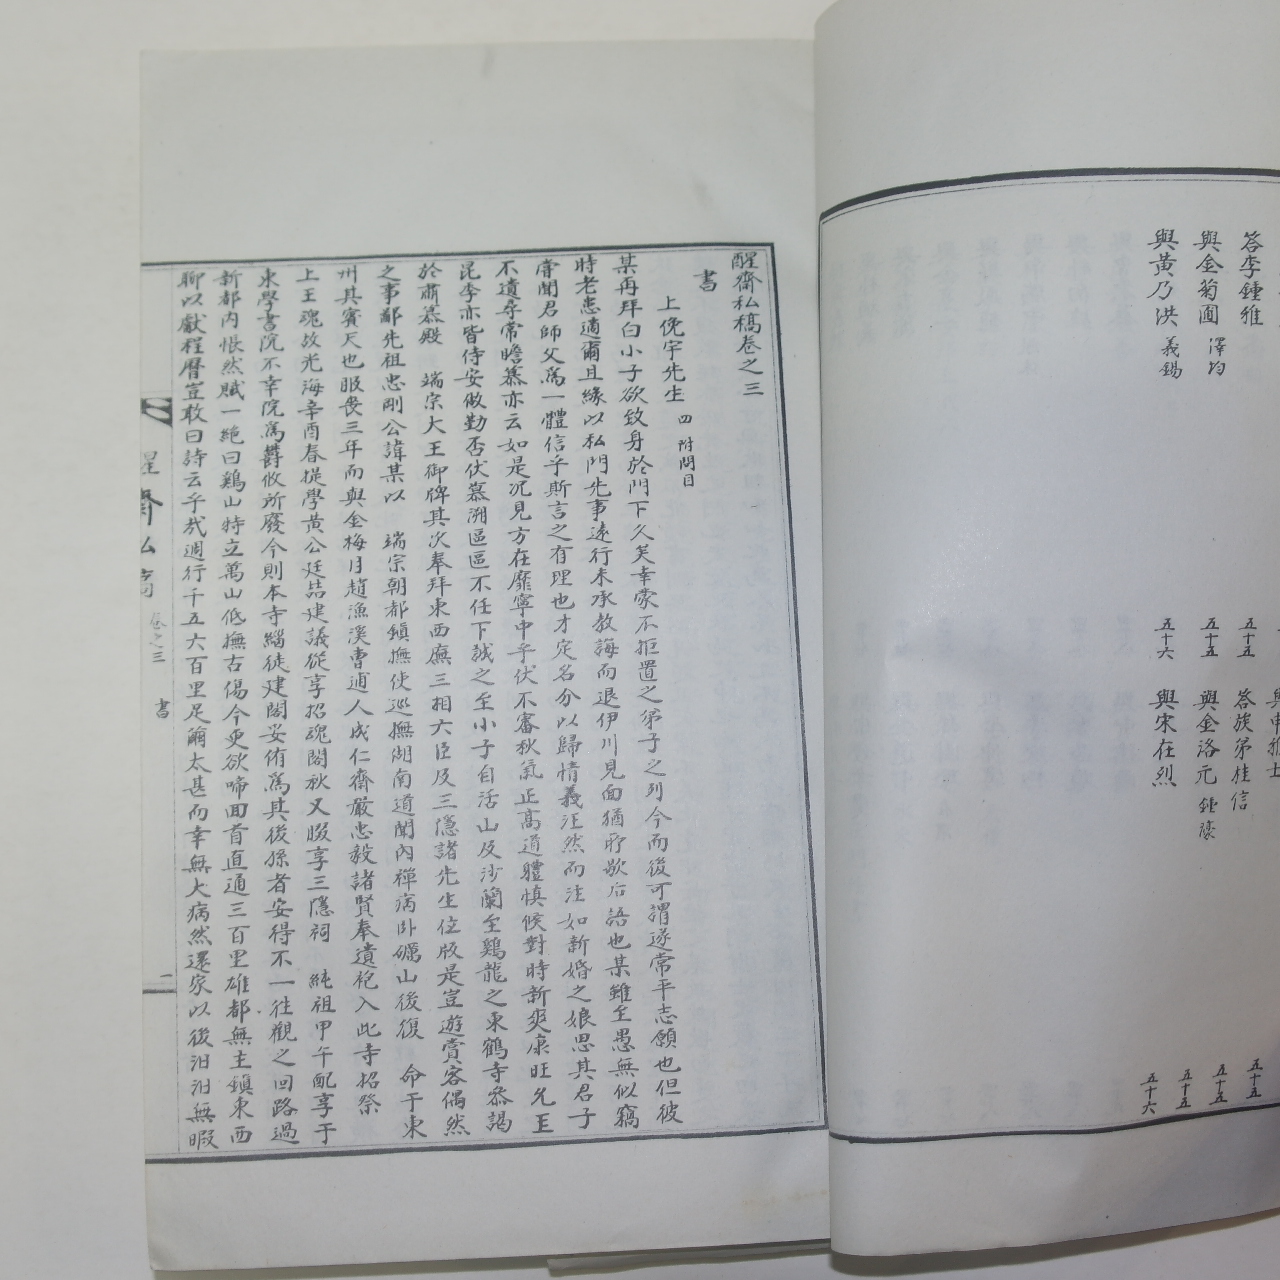 答李鍾雅
五十五
答族弟桂信
五十五
與金菊圃 澤均
五十五
與金洛元 鍾濠
五十五
與黃乃洪 義錫
五十六
與宋在烈
五十六
醒齋私稿卷之三
書
上俛宇先生 四 附問目
某再拜白小子欲致身於門下久矣幸蒙不拒置之弟子之列今而後可謂遂常平志願也但彼
時老恙適爾且緣以私門先事遠行未承敎誨而退伊川見面猶聍歇后語也某雖至愚無似竊
嘗聞君師父爲一體信乎斯言之有理也才定名分以歸情義汪然而注如新婚之娘思其君子
不遺尋常瞻慕亦云如是况見方在靡寧中乎伏不審秋氣正高道體愼候對時新爽康旺允玉
昆季亦皆侍安做勤否伏慕溯區區不任下誠之至小子自活山及沙蘭至鷄龍之東鶴寺叅謁
於肅慕殿 端宗大王御牌其次奉拜東西廡三相六臣及三隱諸先生位版是豈遊賞客偶然
之事鄙先祖忠剛公諱某以 端宗朝都鎭撫使巡撫湖南道聞內禪病卧礪山後復 命于東
州其賓天也服喪三年而與金梅月趙漁溪曺逋人成仁齋嚴忠毅諸賢奉遺袍入此寺招祭
上王魂故光海辛酉春提學黃公廷喆建議從享招魂閣秋又腏享三隱祠 純祖甲午配享于
東學書院不幸院爲欝攸所廢今則本寺緇徒建閣妥侑爲其後孫者安得不一徃觀之回路過
新都內悵然賦一絶曰鷄山特立萬山低撫古傷今更欲啼回首直通三百里雄都無主鎭東西
聊以獻程曆豈敢曰詩云乎㢤週行千五六百里足繭太甚而幸無大病然還家以後汨汨無暇
醒齋私稿
卷之三
書
二